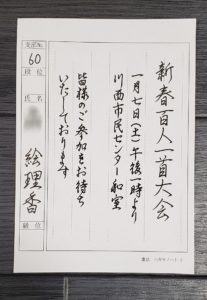 新春百人一首大会
一月七日(土)午後一時より
川西市民センター和室
皆様のご参加をお待ち
いたしております
支部No.
60
段位
氏名
絵理香
級位